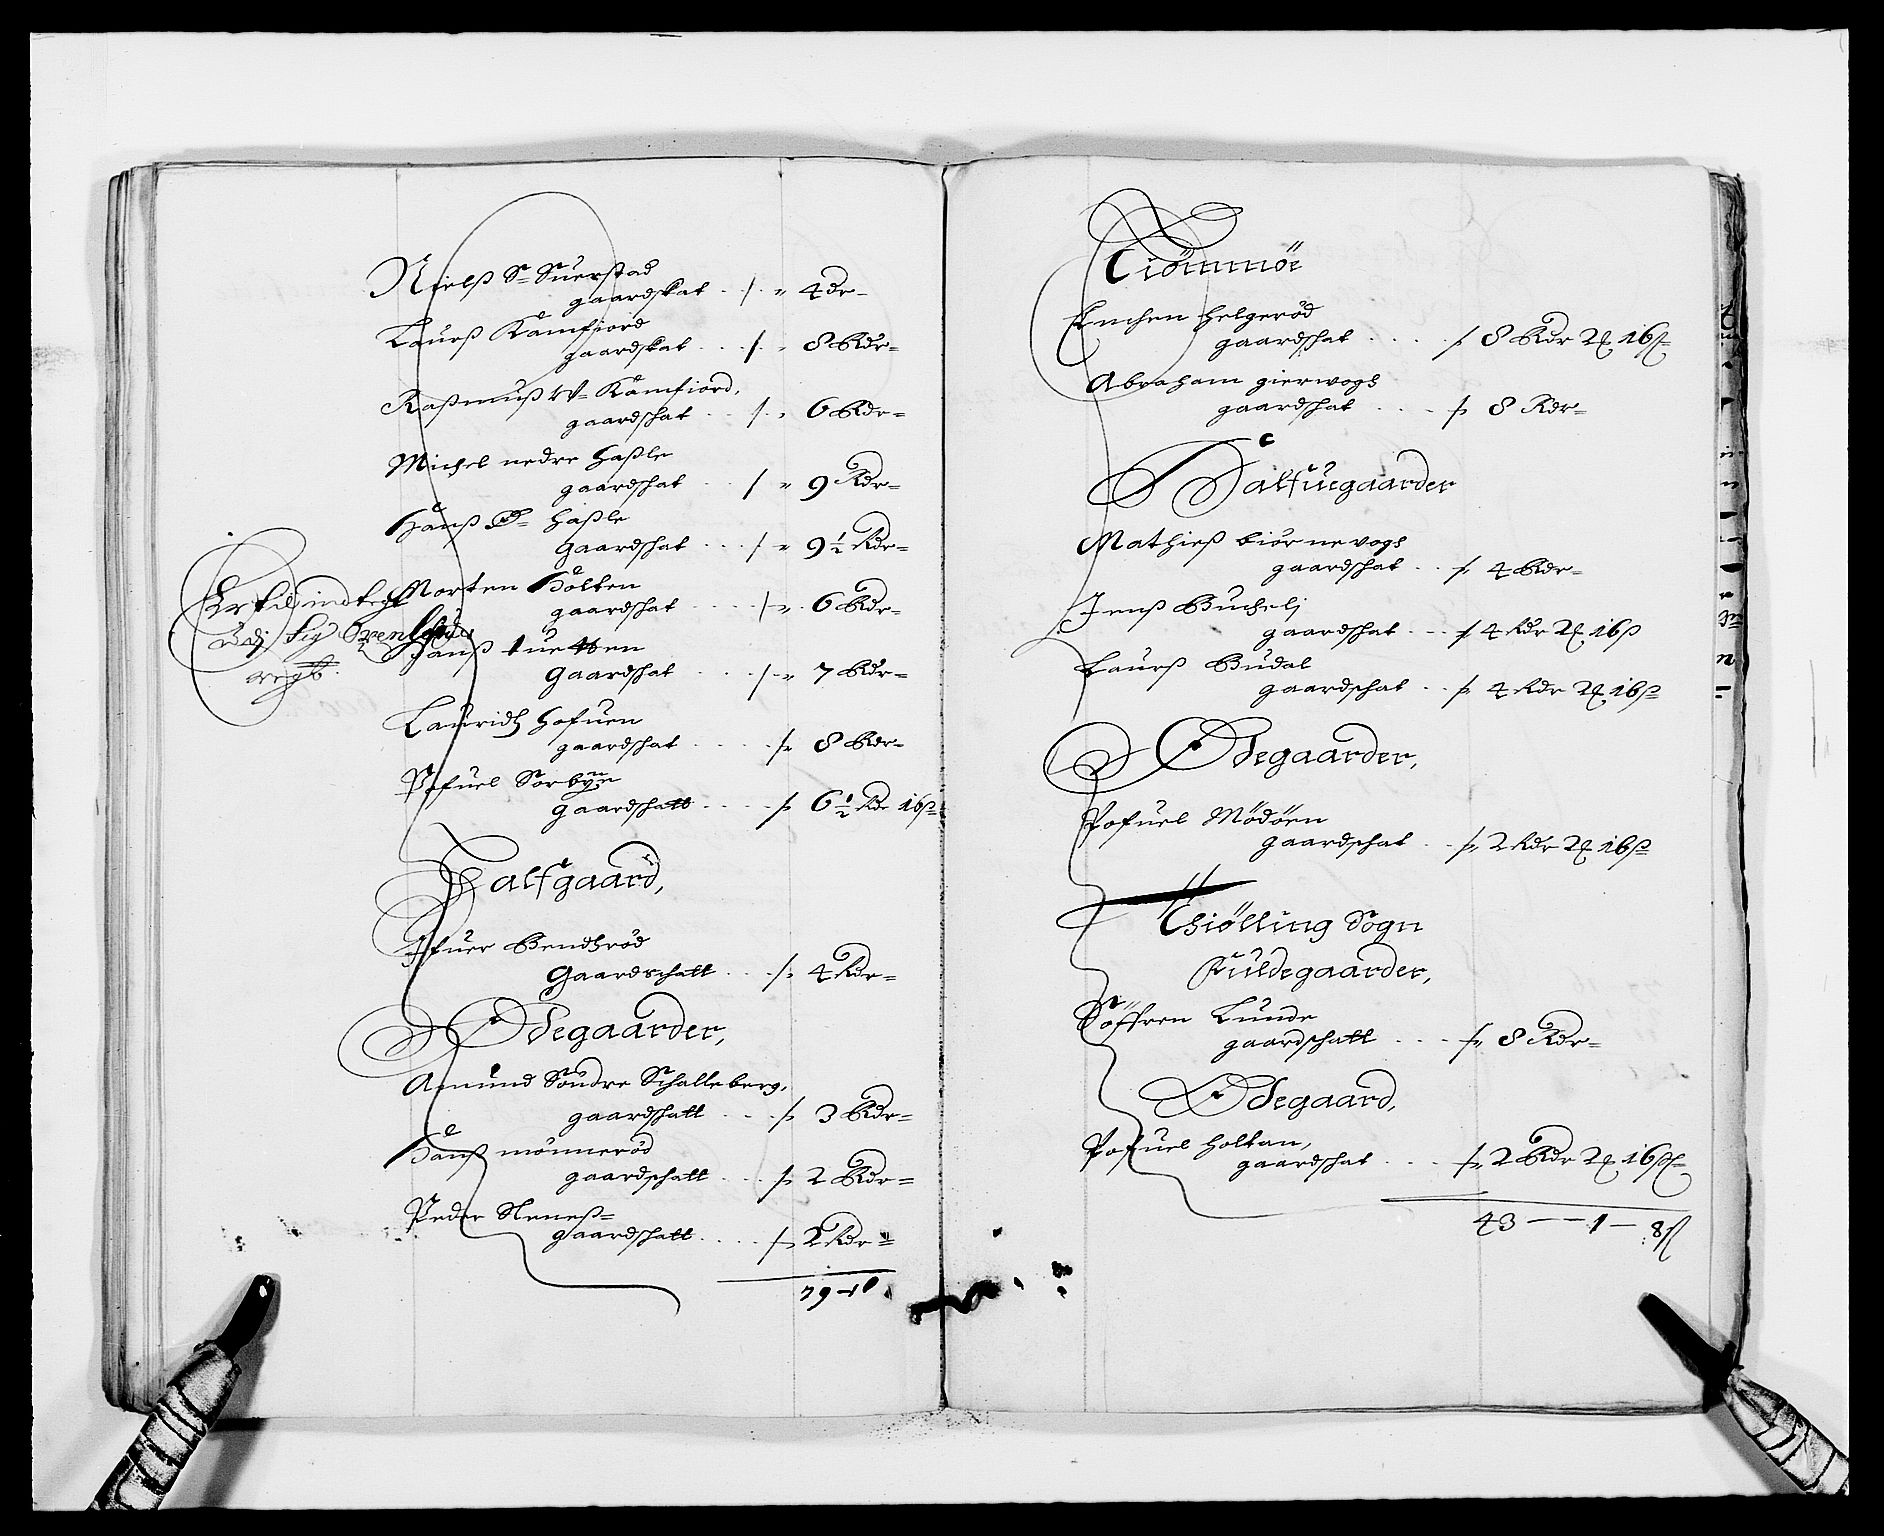 Nielß S= Suerstad
gaardskat . / . „ 4 dr–
Laurß Kamfiord
gaardskat . . . / . „ 8 Rdr–
Raßmuß W= Kamfiord,
gaardschat . . / . „ 6 Rdr–
Michel nedre Haßle
gaardschat . . / „ 9 Rdr–
Hanß Ø= Haßle
gaardschat . . . / „ 9 ½ Rdr–
Morten Holten
gaardschat . . . . / „ 6 Rdr–
Hanß tuetten
gaardschat . . . . / „ 7 Rdr–
Lauridtz Hofuen
gaardschat . . . . . / „ 8 Rdr–
Pofuel Sorbyen
gaardschatt . . . . / „ 6 ½ Rdr 16 ß
Halfgaard,
Ifuer Bendhröd
Gaardschatt . . . / „ 4 Rdr–
Ödegaarder,
Amund Söndre Schalleberg,
gaardschatt . . . / „ 3 Rdr–
Hanß mönneröd
gaardschatt . . . / „ 2 Rdr–
Peder Neneß–
gaardschatt . . . . / „ 2 Rdr–
79 – 1
Tiömmöe
Helgeröd
gaardschat . . . . . / „ 8 Rdr 2 16 ß
Abraham gierwogh
gaardschat . . . . / „ 8 Rdr–
Halfuegaarder
Mathieß biörnevogh
gaardschat . . / „ 4 Rdr–
Jenß Bucheli
gaardschat . . . / „ 4 Rdr 2 16 ß
Laurß Budal
gaardschat . . / „ 4 Rdr 2 16 ß
Ödegaarder,
Pofuel Mödöen
gaardschat . . / „ 2 Rdr 2 16 ß
Thiölling Sogn
Fuldegaarder,
Söffren Lunde
gaardschatt . . . / „ 8 Rdr–
Ödegaard,
Pofuel Holtan,
gaardschat . . . . / „ 2 Rdr 2 16 ß
43 – – 1 – 8 ß